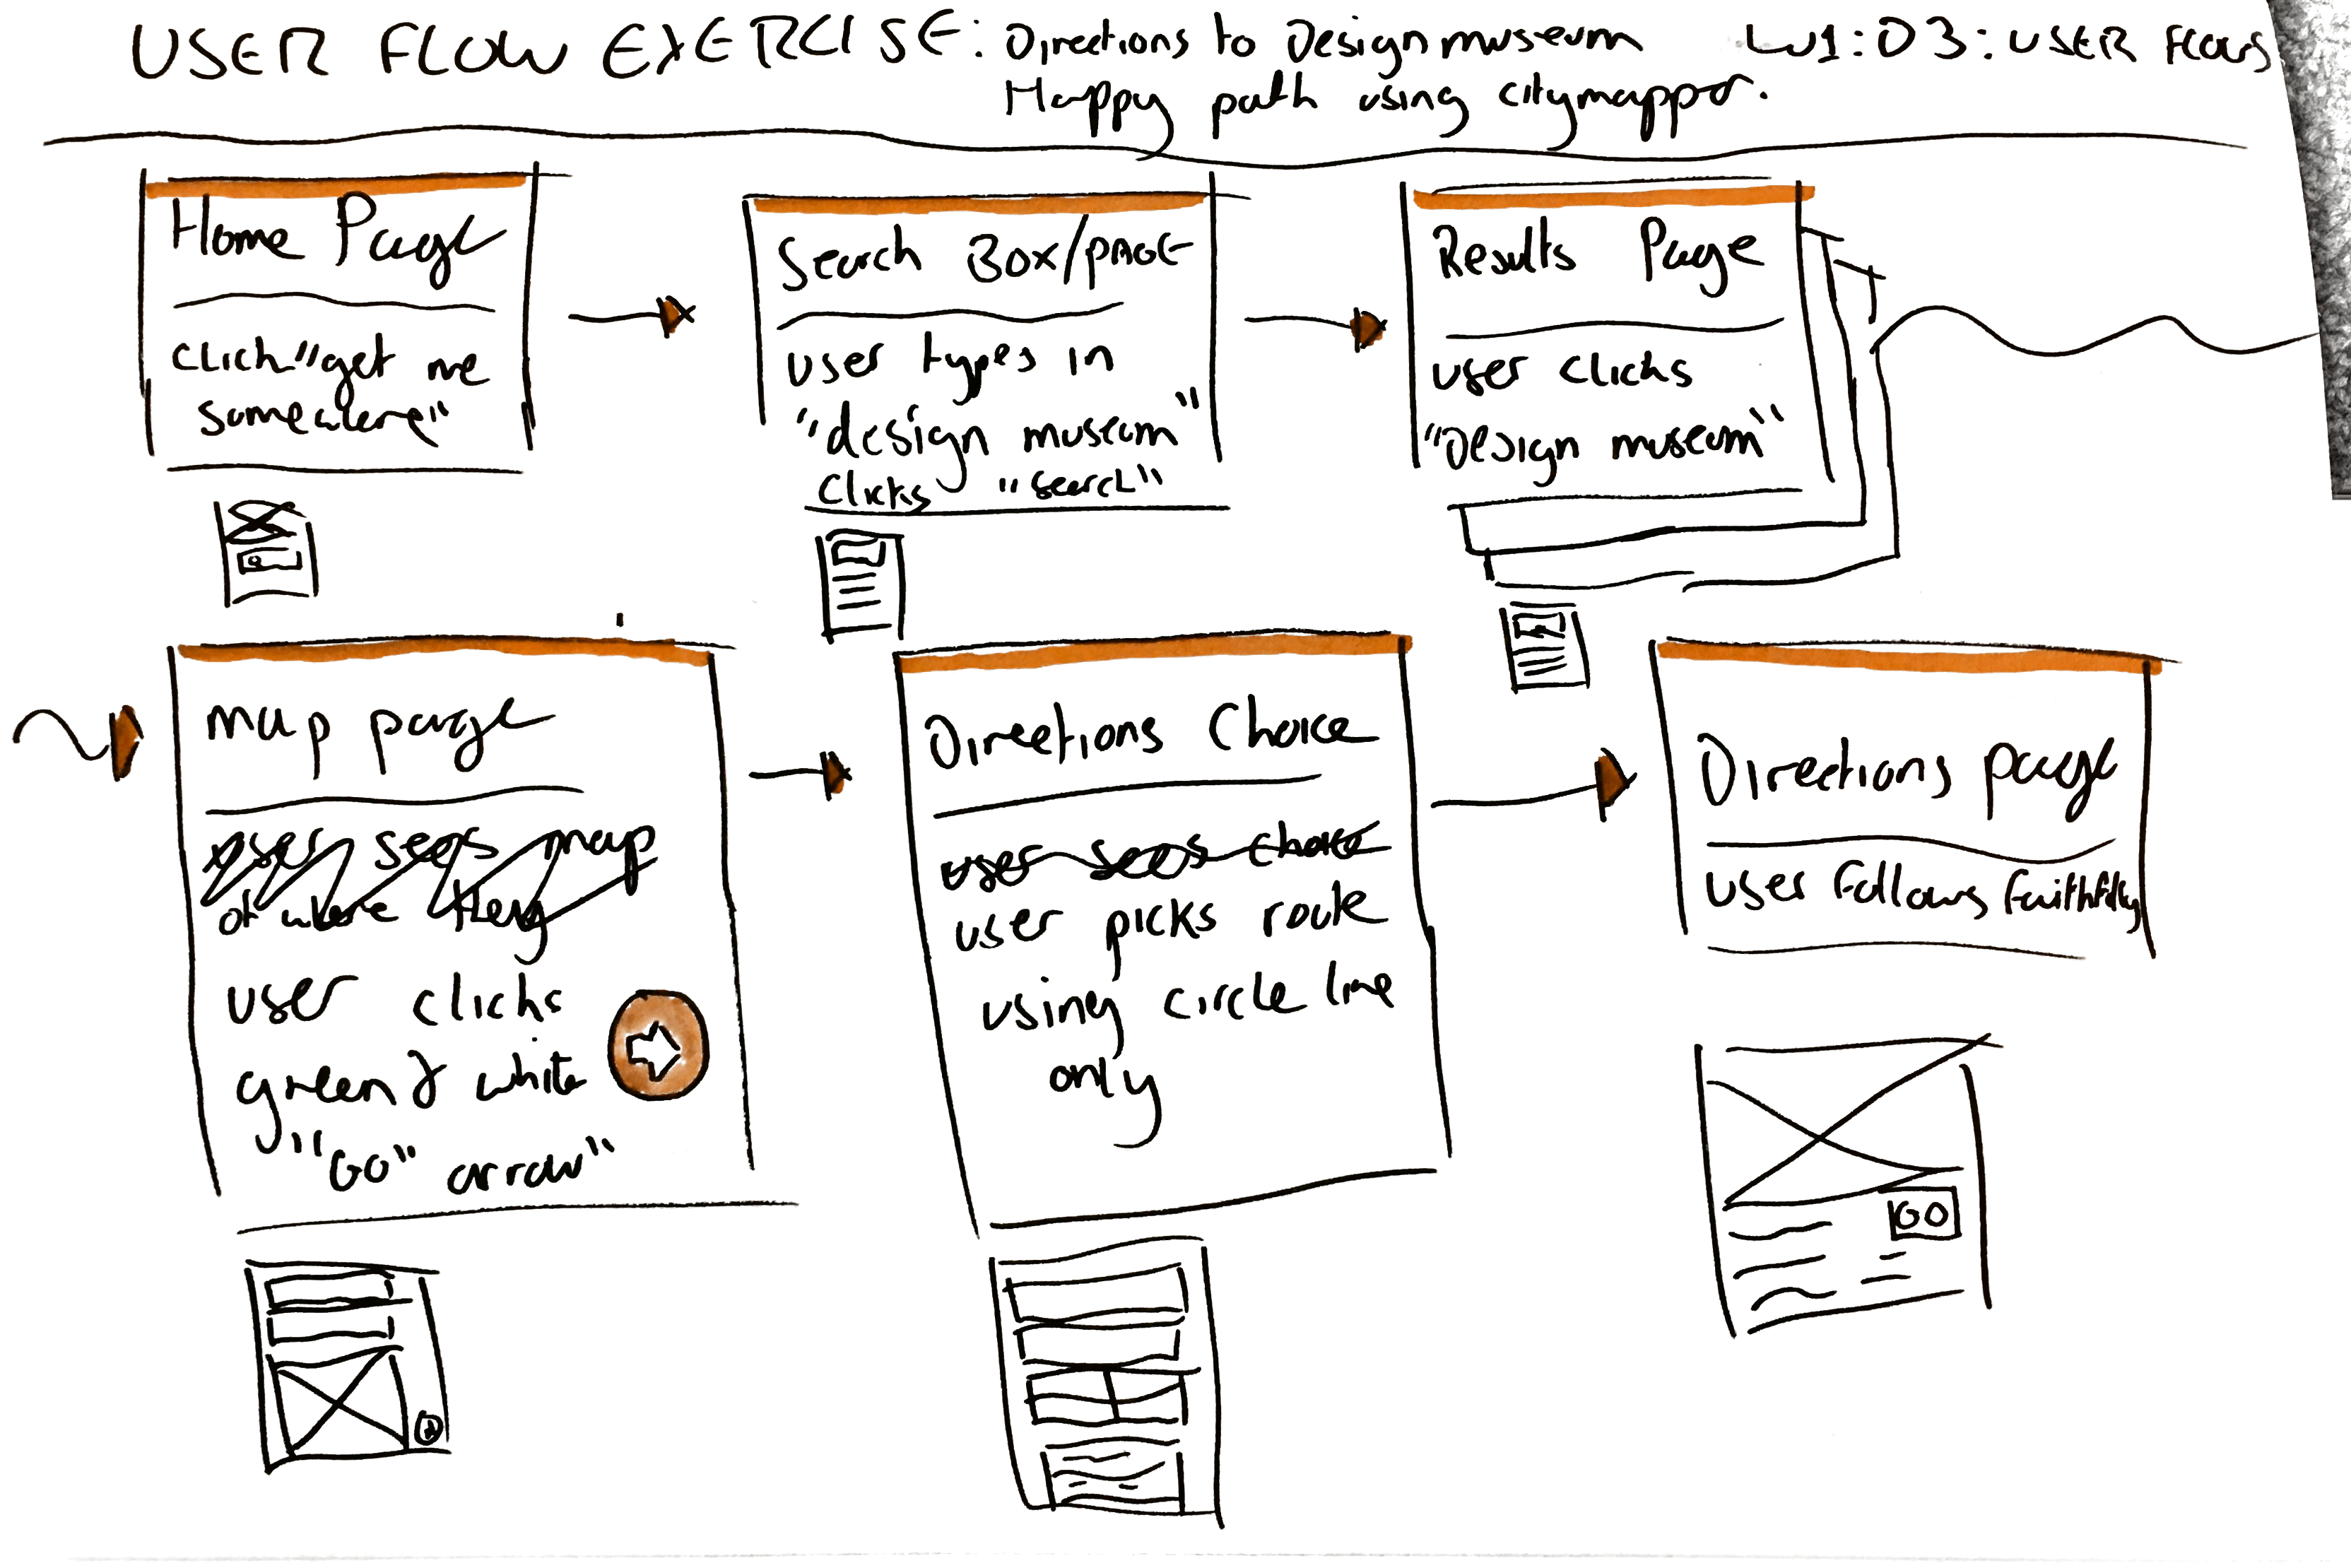 USER FLOW EXERCISE: Directions to Design museum
Happy path using citymapper.
W1:D3: USER FLOWS
Home Page
click "get me
somewhere"
Search BOX/PAGE
user types in
"design museum"
clicks "search"
Results Page
user clicks
"Design museum"
Map page
user sees map
of where they
user clicks
green & white
"GO" arrow"
Directions Choice
user sees choice
user picks route
using circle line
only
Directions page
user follows faithfully
GO